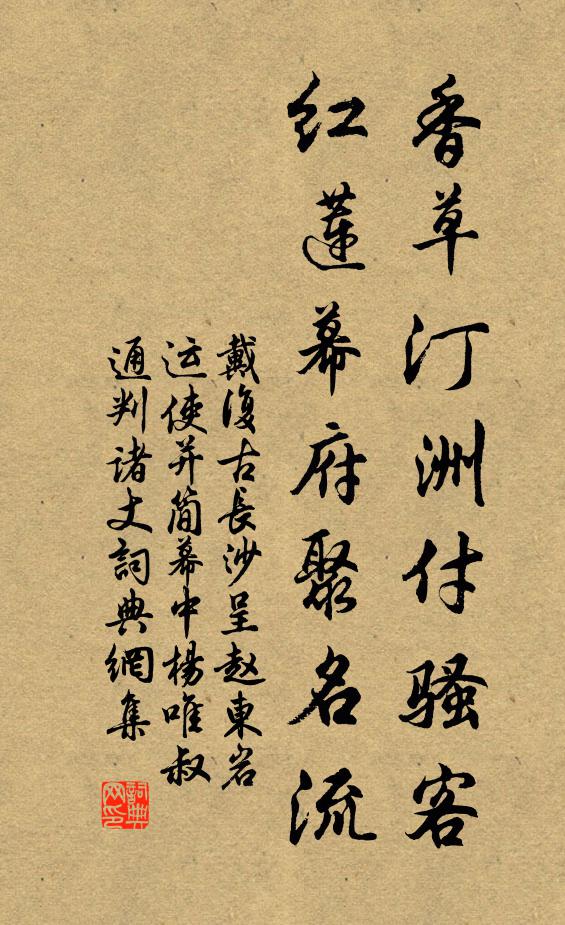 香草汀洲付骚客
红莲幕府聚名流
戴復古長沙呈赵東岩
运使并简幕中楊唯叔
通判诸丈詞典網集
詞典网印